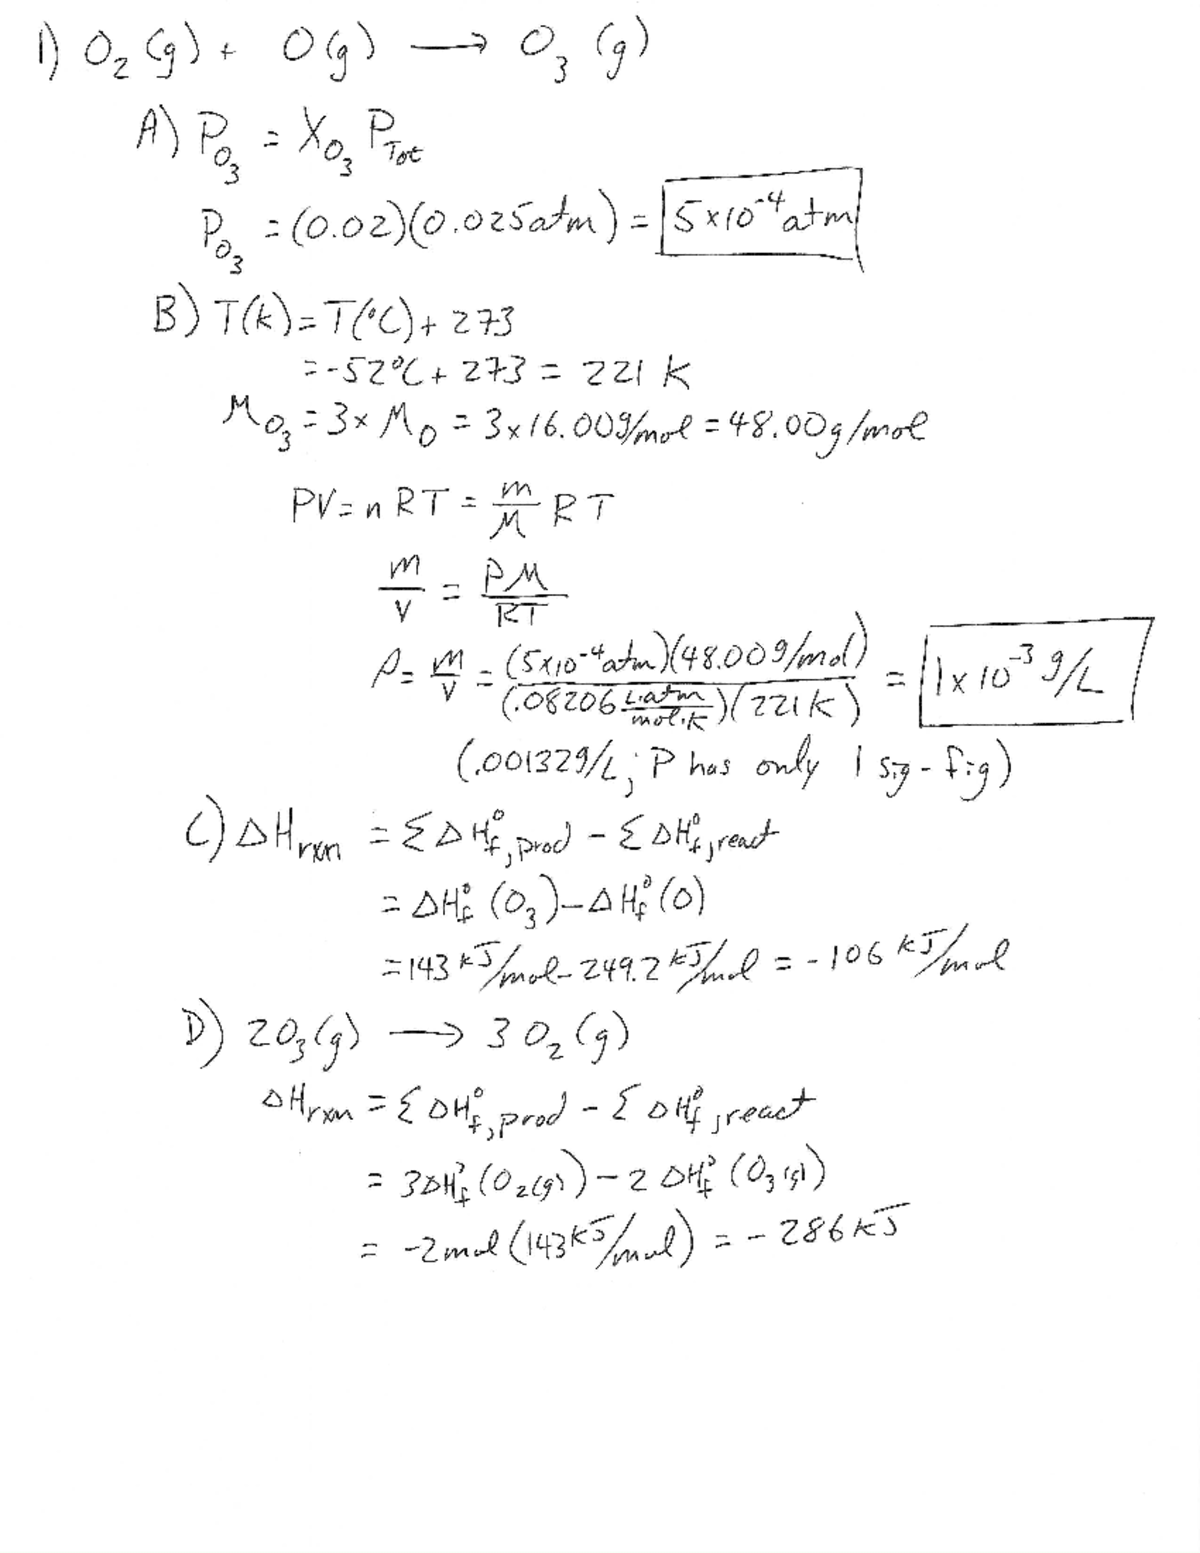 1) O₂(g) + O(g) → O₃(g)
A) P_O₃ = X_O₃ P_Tot
P_O₃ = (0.02)(0.025atm) = 5×10⁻⁴atm
B) T(k) = T(°C) + 273
= -52°C + 273 = 221 K
M_O₃ = 3×M_O = 3×16.00g/mol = 48.00g/mol
PV = nRT = m/M RT
m/V = PM/RT
ρ = m/V = (5×10⁻⁴atm)(48.00g/mol)/(.08206 L·atm/mol·K)(221K) = 1×10⁻³ g/L
(.00132g/L; P has only 1 sig-fig)
C) ΔH_rxn = ΣΔH°f,prod − ΣΔH°f,react
= ΔH°f (O₃) − ΔH°f (O)
= 143 kJ/mol - 249.2 kJ/mol = -106 kJ/mol
D) 2O₃(g) → 3O₂(g)
ΔH_rxn = ΣΔH°f,prod − ΣΔH°f,react
= 3ΔH°f (O₂(g)) − 2ΔH°f (O₃(g))
= -2mol (143kJ/mol) = -286kJ